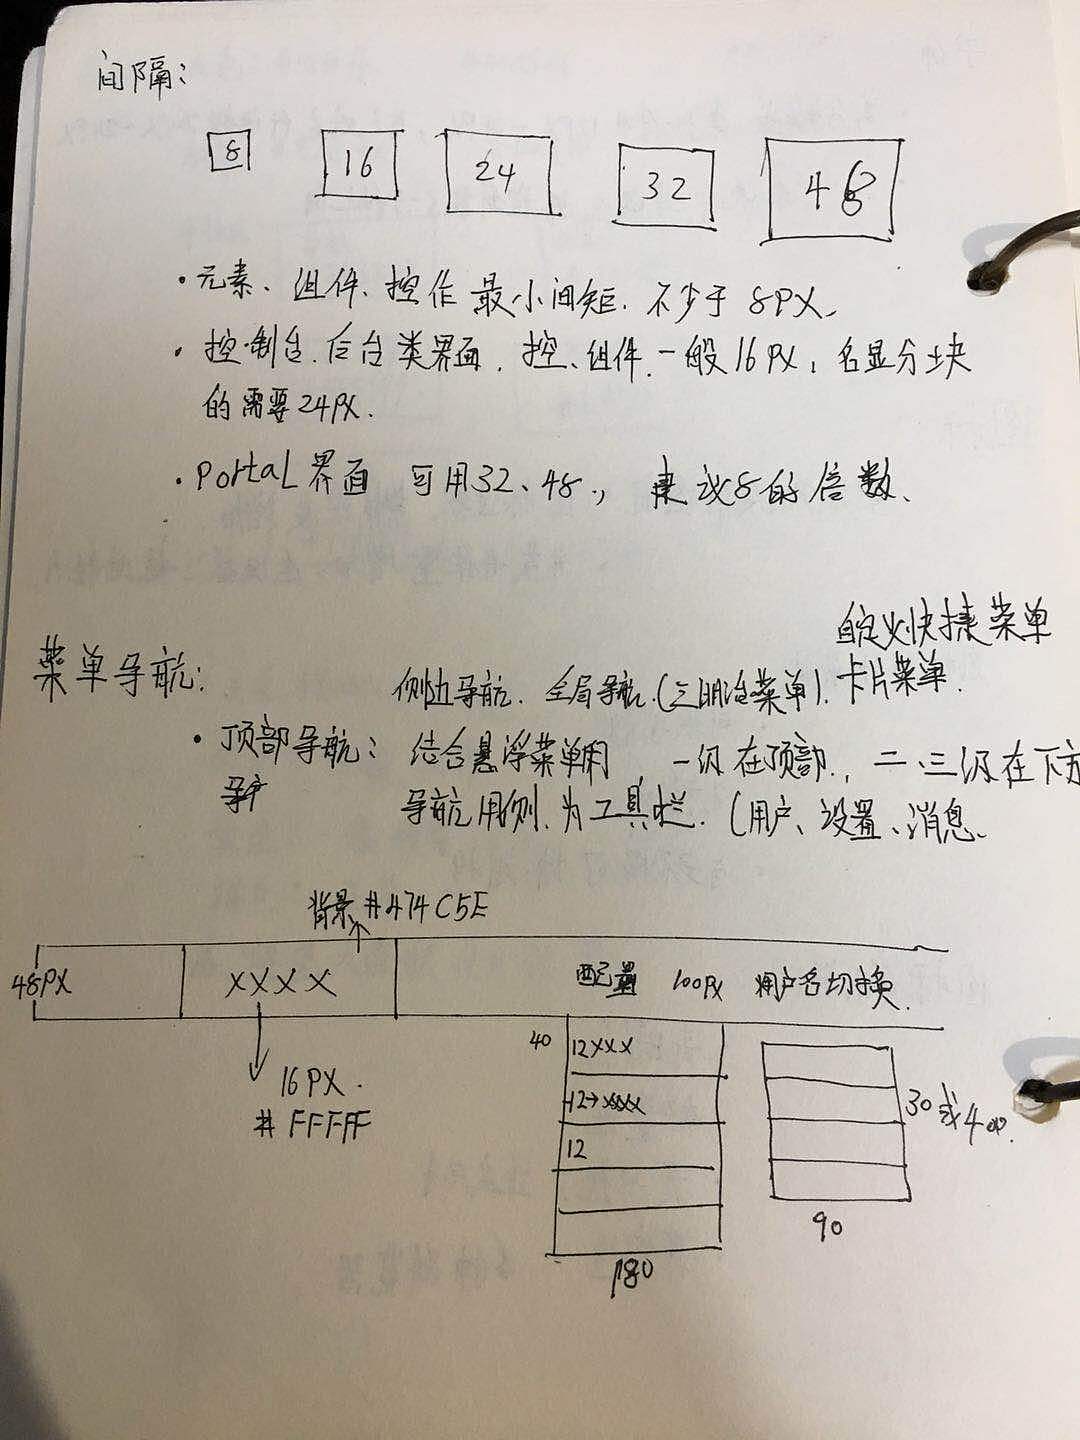 间隔:
8 16 24 32 48
·元素、组件、控作 最小间矩. 不少于 8PX.
·控制台.后台类界面. 控、组件.一般16PX, 名显分块
的需要24PX.
·PortaL界面 可用32、48., 建议8的倍数.
自定义快捷菜单
菜单导航: 侧边导航. 全局导航.(三明治菜单). 卡片菜单.
·顶部导航: 结合悬浮菜单用 一级在顶部., 二.三级在下方
导航用侧.为工具栏. (用户、设置、消息.
背景#474C5E
48PX XXXX 配置 100PX 用户名切换.
40 12XXX
16PX. 12→XXXX 30或40.
#FFFFF 12
90
180